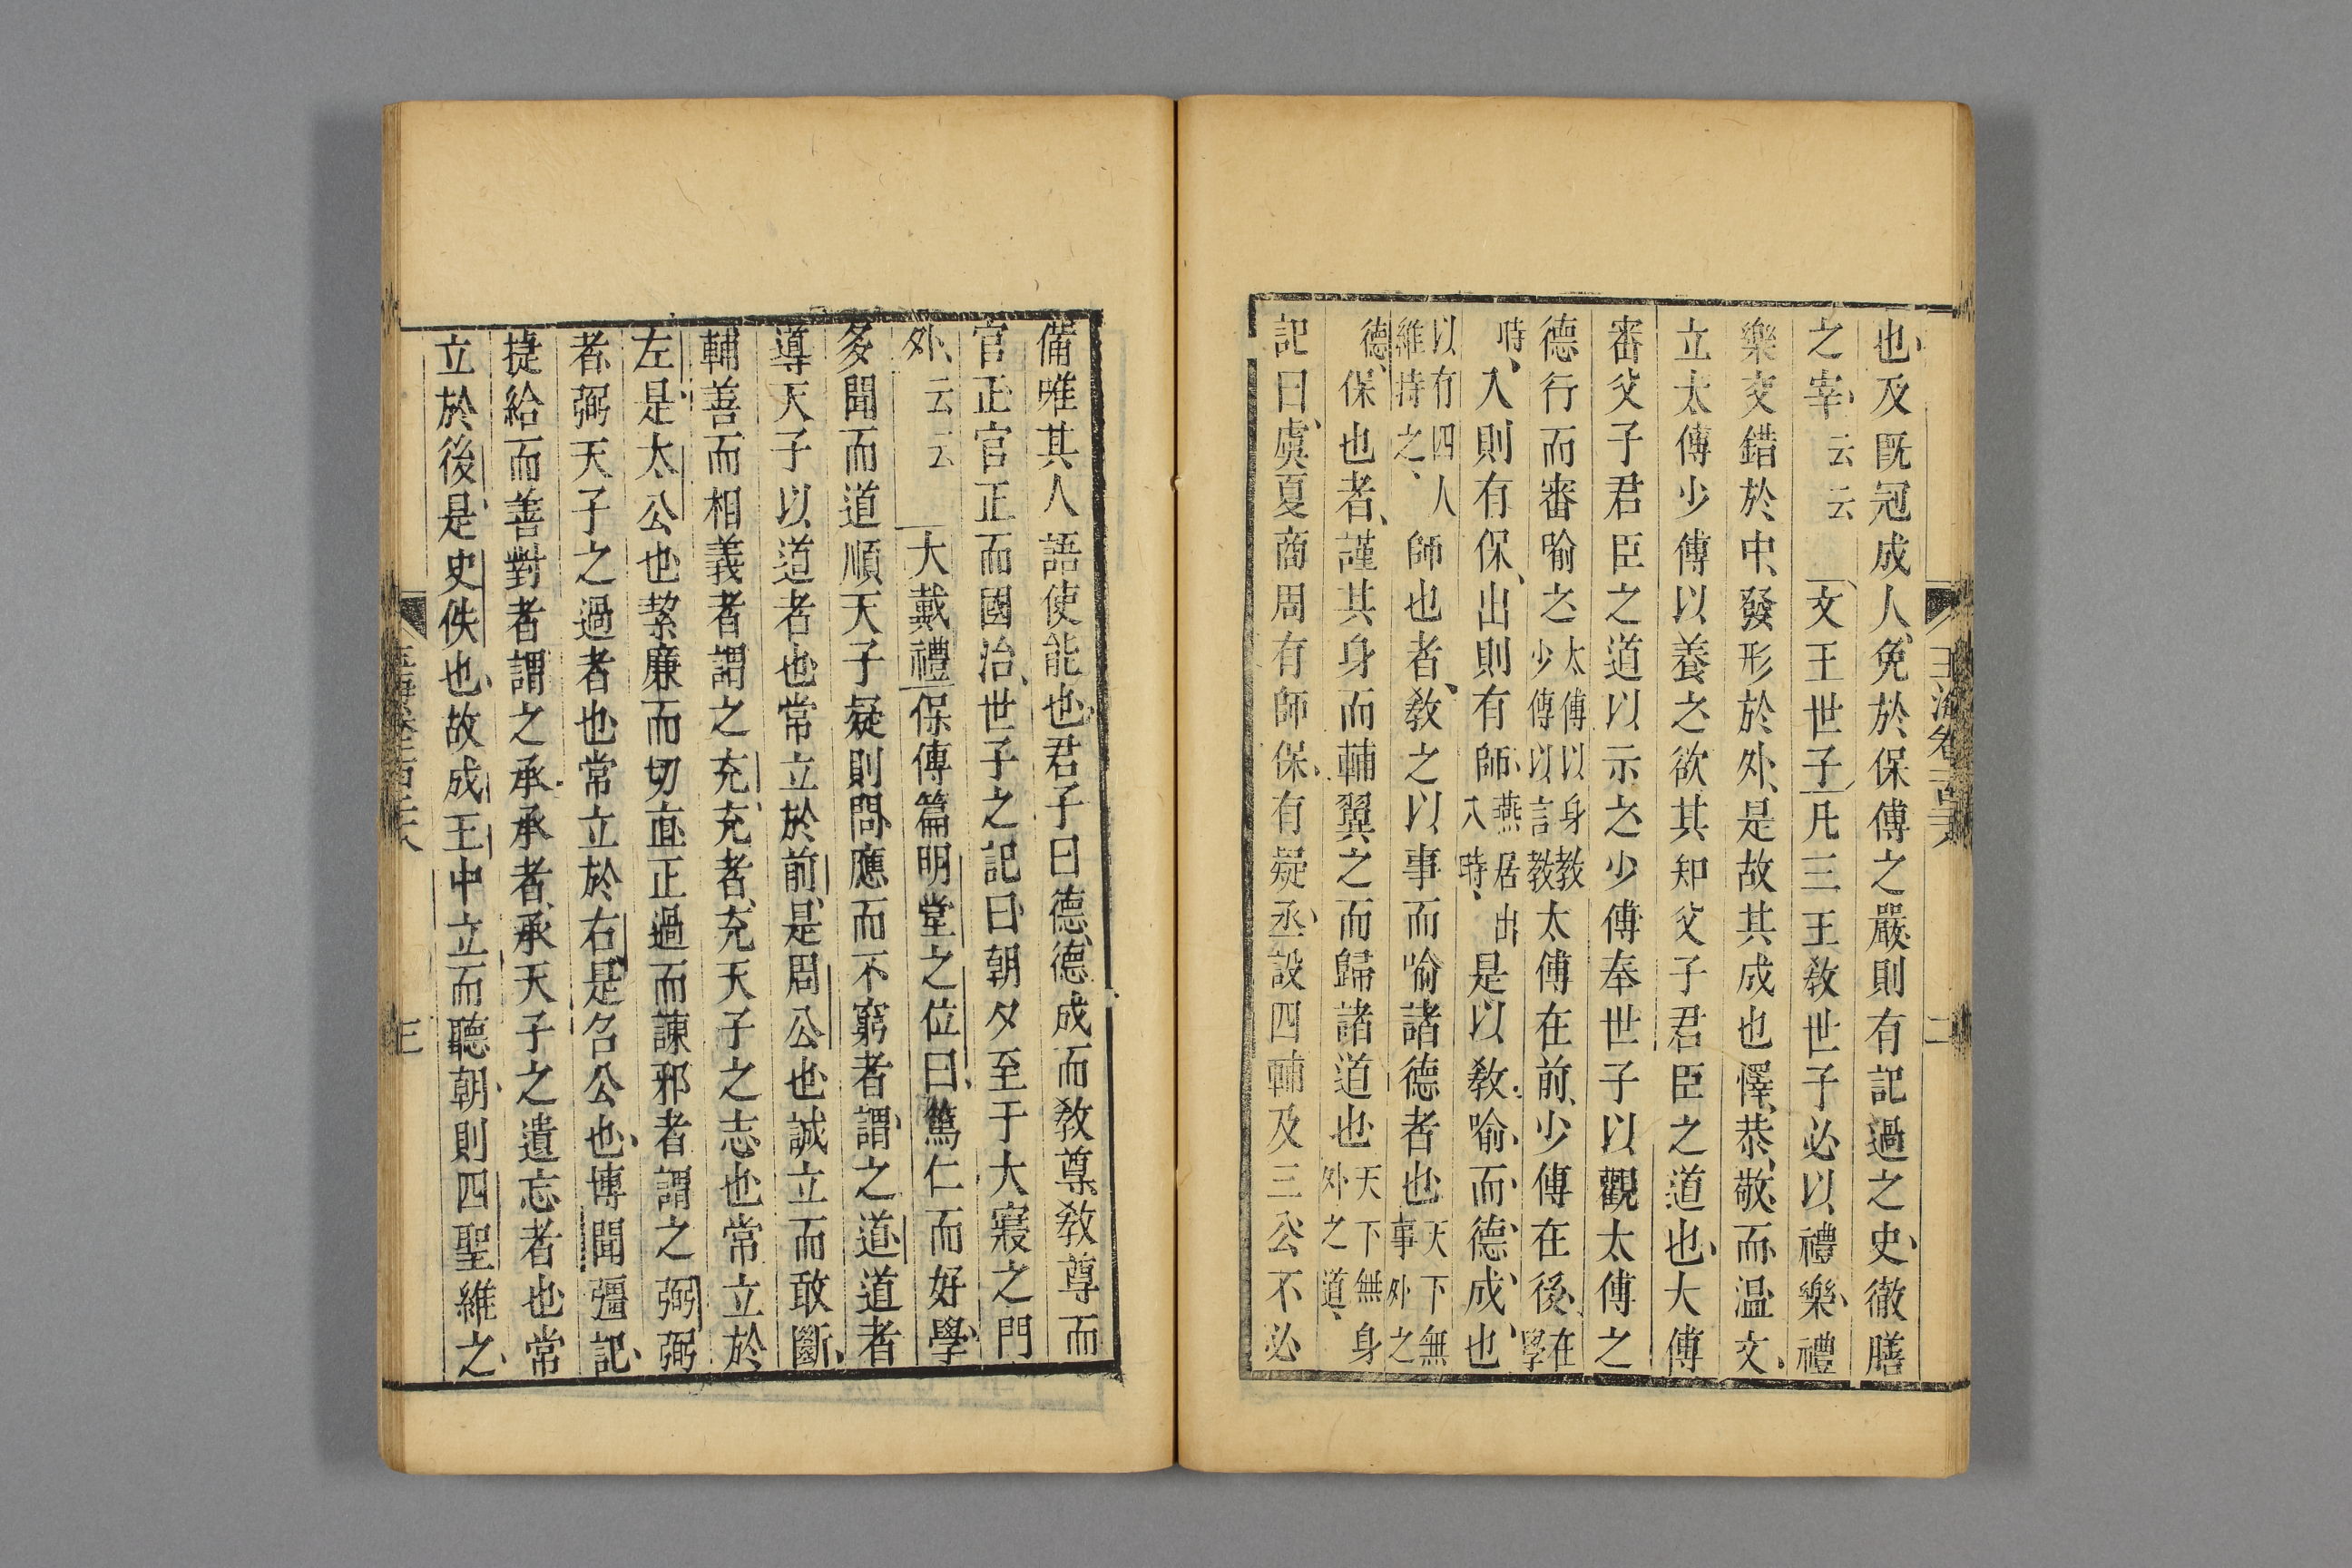 也及既冠成人免於保傅之嚴則有記過之史徹膳
之宰云云文王世子凡三王敎世子必以禮樂禮
樂交錯於中發形於外是故其成也懌恭敬而温文
立太傅少傅以養之欲其知父子君臣之道也大傅
審父子君臣之道以示之少傅奉世子以觀太傅之
德行而審喻之太傅以身教少傅以言教太傅在前少傅在後在學
時入則有保出則有師燕居出入時是以敎喻而德成也
以有四人維持之師也者敎之以事而喻諸德者也天下無事外之
德保也者謹其身而輔翼之而歸諸道也天下無身外之道
記曰虞夏商周有師保有疑丞設四輔及三公不必
玉海卷
二
備唯其人語使能也君子曰德德成而敎尊敎尊而
官正官正而國治世子之記曰朝夕至于大寢之門
外云云大戴禮保傅篇明堂之位曰篤仁而好學
多聞而道順天子疑則問應而不窮者謂之道道者
導天子以道者也常立於前是周公也誠立而敢斷
輔善而相義者謂之充充者充天子之志也常立於
左是太公也絜廉而切直正過而諫邪者謂之弼弼
者弼天子之過者也常立於右是召公也博聞彊記
捷給而善對者謂之承承者承天子之遺忘者也常
立於後是史佚也故成王中立而聽朝則四聖維之
三